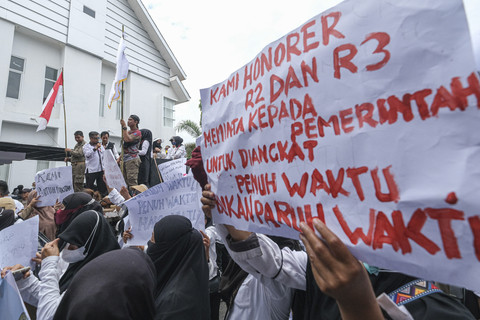 KAMI HONORER
R2 DAN R3
MEMINTA KEPADA
PEMERINTAH
UNTUK DIANGKAT
PENUH WAKTU
BUKAN PARUH WAKTU
PENUH WAKTU